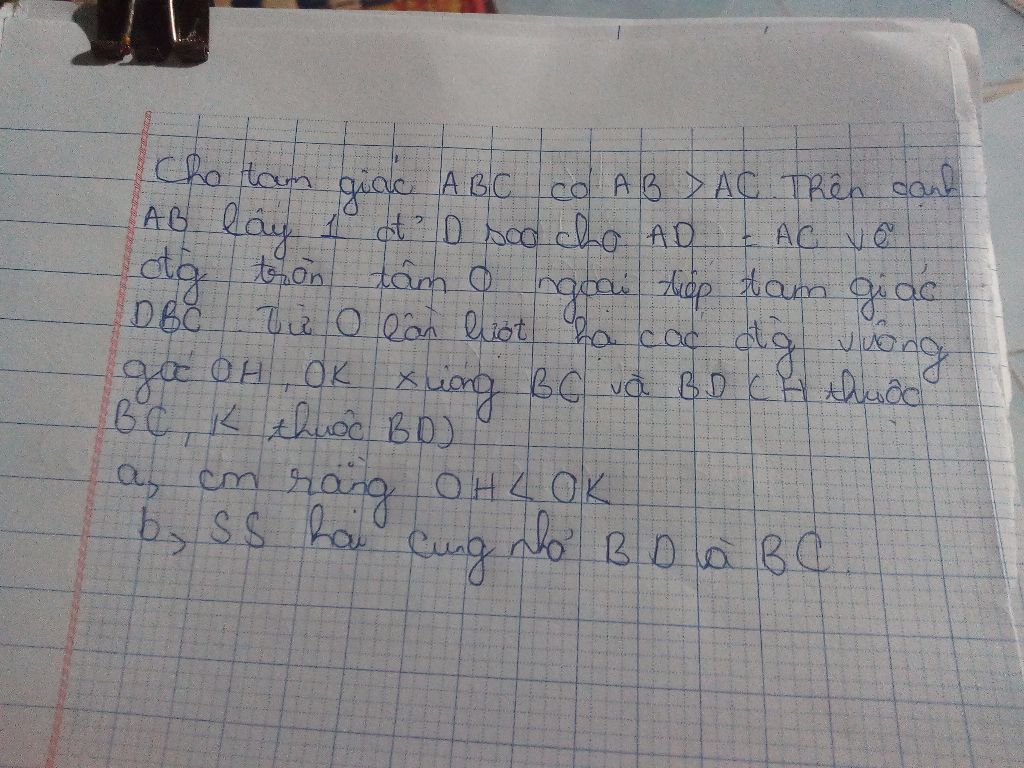 Cho tam giác ABC có AB > AC. Trên cạnh
AB lấy 1 đ' D sao cho AD = AC vẽ
đtg tròn tâm O ngoại tiếp tam giác
DBC. Từ O lần lượt hạ các đtg vuông
góc OH, OK xuống BC và BD (H thuộc
BC, K thuộc BD)
a, cm rằng OH < OK
b, SS hai cung nhỏ BD và BC.